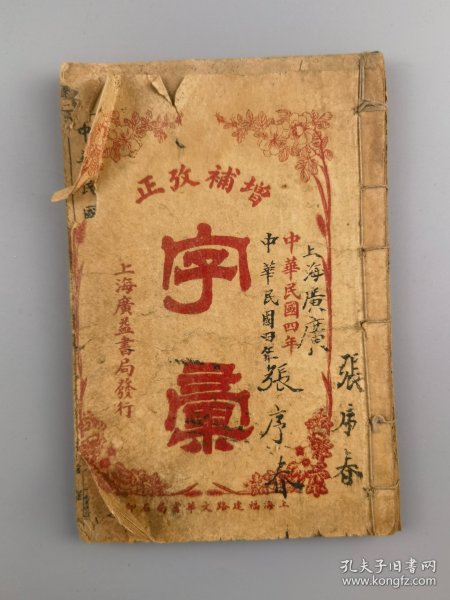 增補攷正
字彙
中華民國四年
上海廣益書局發行
上海福建路文華書局石印
上海廣廣
中華民國四年張序春
張序春
中華民國
孔夫子旧书网
www.kongfz.com